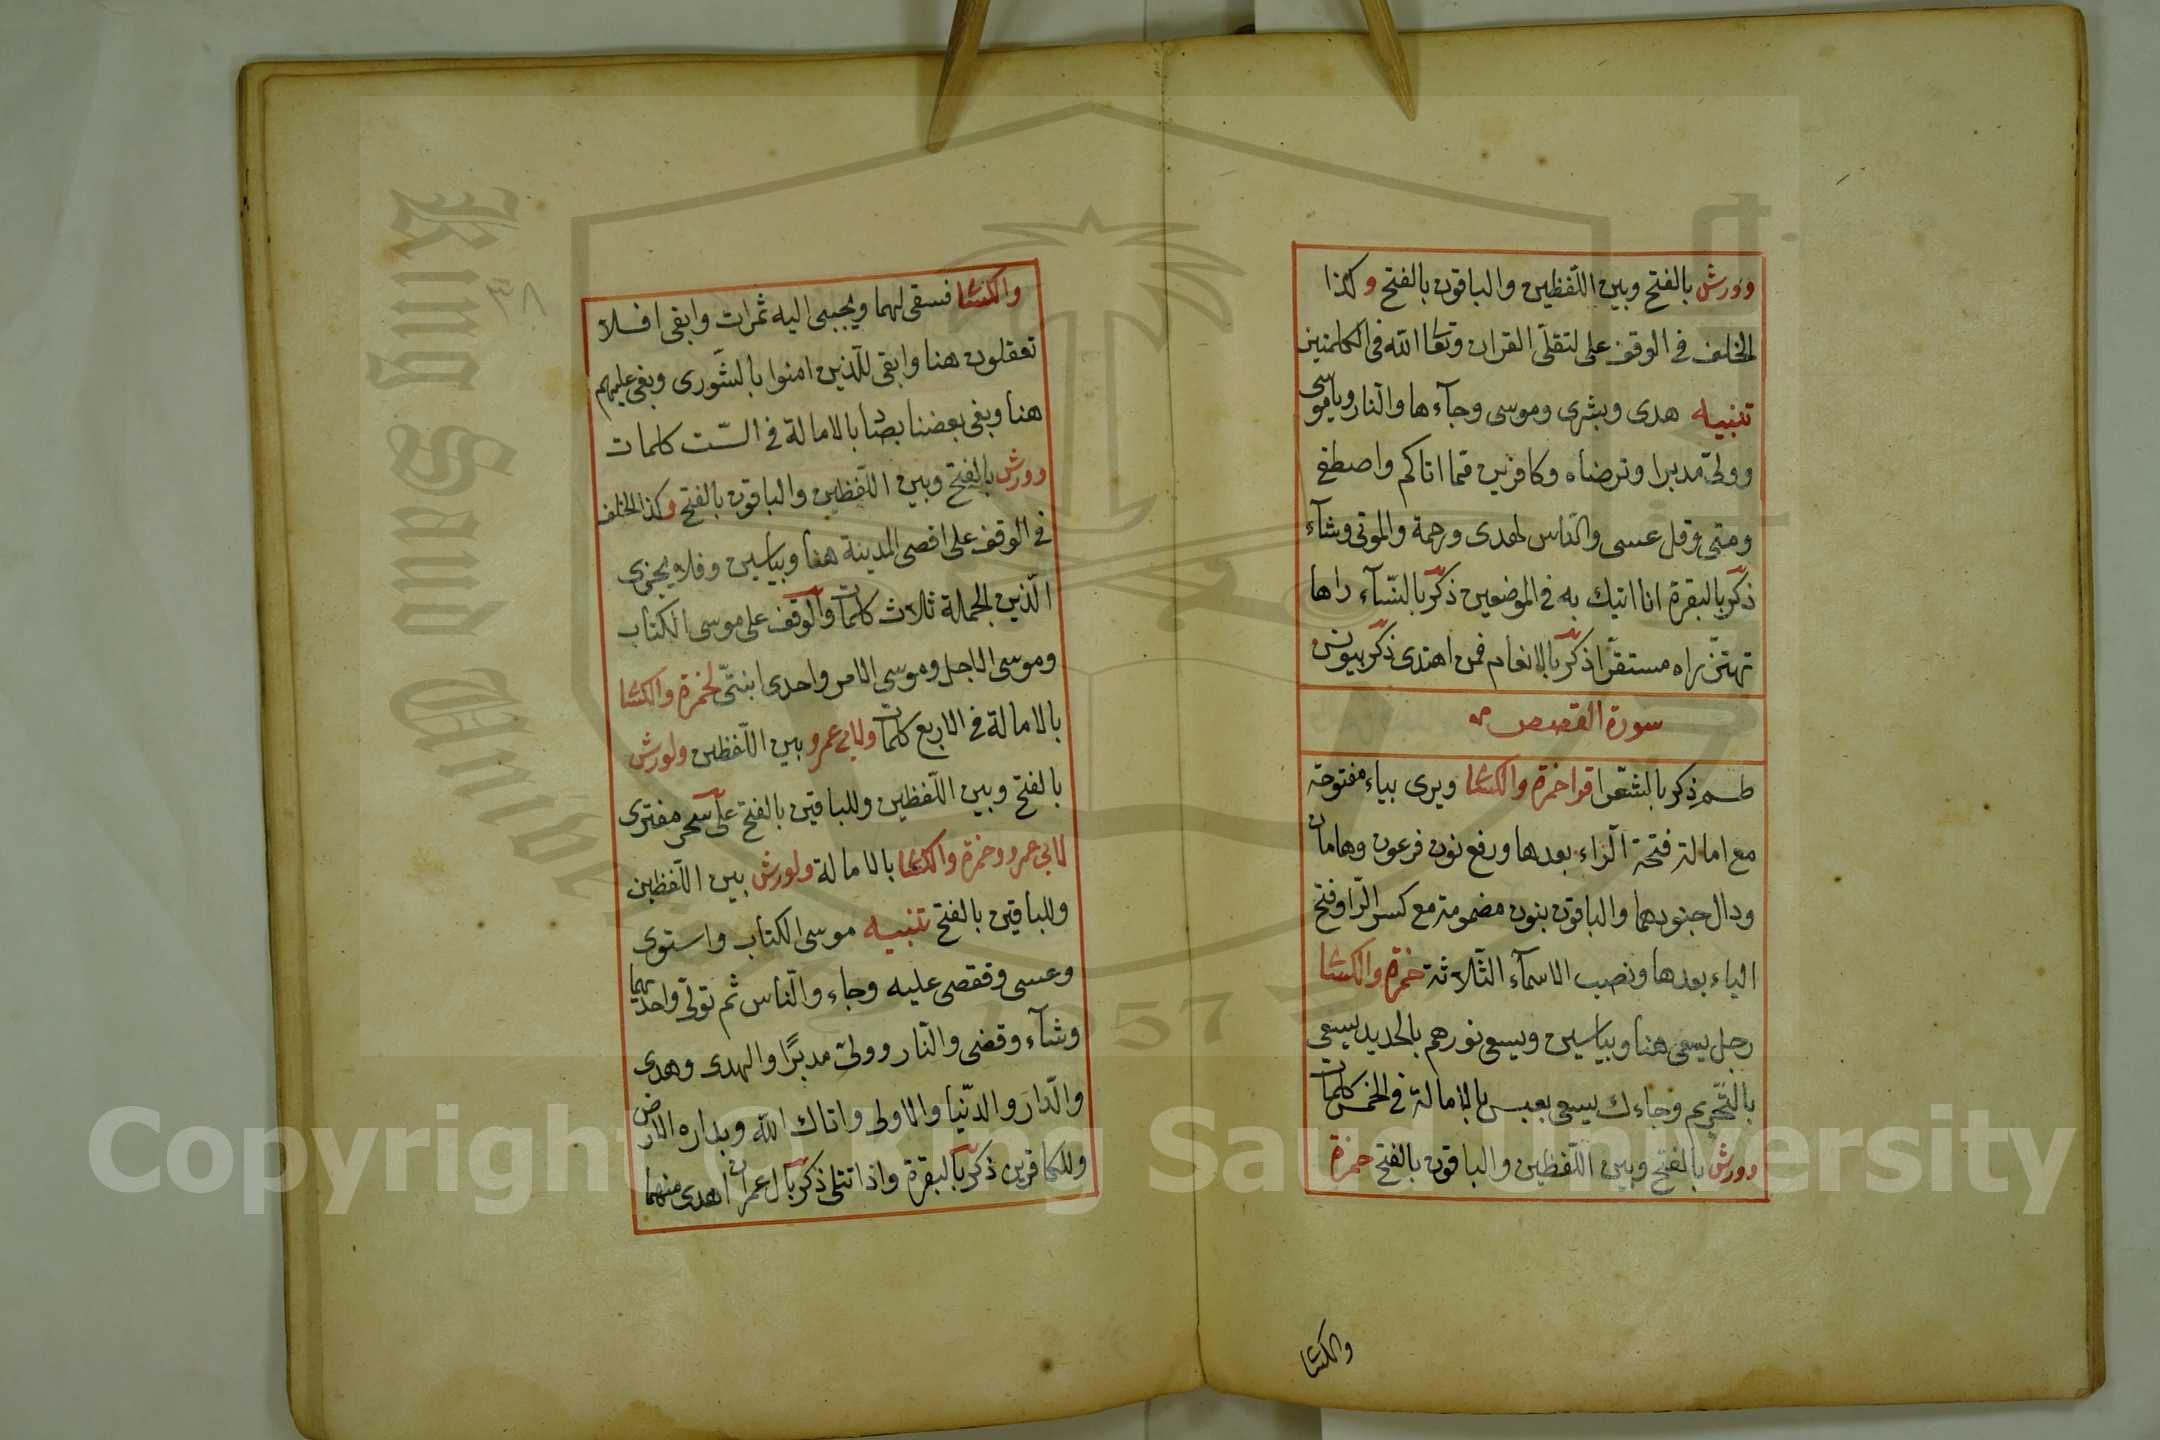 وورش بالفتح وبين اللّفظين والباقون بالفتح وكذا
الخلف في الوقف على لتقلّى القران وتعا الله في الكلمتين
تنبيه هدى وبشرى وموسى وجآءها والنار وياموسى
وولىّ مدبرا وترضاه وكافرين فما اتاكم واصطفى
ومتى وقل عسى والنّاس لهدى ورحمة والموتى وشآء
ذكر بالبقرة انا اتيك به في الموضعين ذكر بالنسآء راها
تهتزّ راه مستقرّا ذكر بالانعام فمن اهتدى ذكر بيونس
سورة القصص
طسم ذكر بالشعرا قرا حمزة والكسا ويرى بياء مفتوحة
مع امالة فتحة الراء بعدها ورفع نون فرعون وهامان
ودال جنودهما والباقون بنون مضمومة مع كسر الرّا وفتح
الياء بعدها ونصب الاسمآء الثّلاثة حمزة والكسا
رجل يسعى هنا وبياسين ويسعى نورهم بالحديد يسعى
بالتّحريم وجاءك يسعى بعبس بالامالة في الخمس كلمات
وورش بالفتح وبين اللّفظين والباقون بالفتح حمزة
والكسا
٣٨
والكسا فسقى لهما ويجبى اليه ثمرات وابقى افلا
تعقلون هنا وابقى للّذين امنوا بالشّورى وبغى عليهم
هنا وبغى بعضنا بصّا بالامالة في السّت كلمات
وورش بالفتح وبين اللّفظين والباقون بالفتح وكذا الخلف
في الوقف على اقصى المدينة هنا وبياسين وفلا يجزى
الّذين الجملة ثلاث كلمات والوقف على موسى الكتاب
وموسى الاجل وموسى الامر واحدى ابنتىّ لحمزة والكسا
بالامالة في الاربع كلمات ولابي عمرو بين اللّفظين ولورش
بالفتح وبين اللّفظين وللباقين بالفتح على سحر مفترى
لابي عمرو وحمزة والكسا بالامالة ولورش بين اللّفظين
وللباقين بالفتح تنبيه موسى الكتاب واستوى
وعسى وفقضى عليه وجاء والنّاس ثم تولّى واحديهما
وشآء وقضى والنّار وولىّ مدبرًا والهدى وهدى
والدّار والدّنيا والاولى واتاك الله وبداره الارض
وللكافرين ذكر بالبقرة واذا تتلى ذكر بال عمران اهدى منهما
Copyright © King Saud University
King Saud University
1957